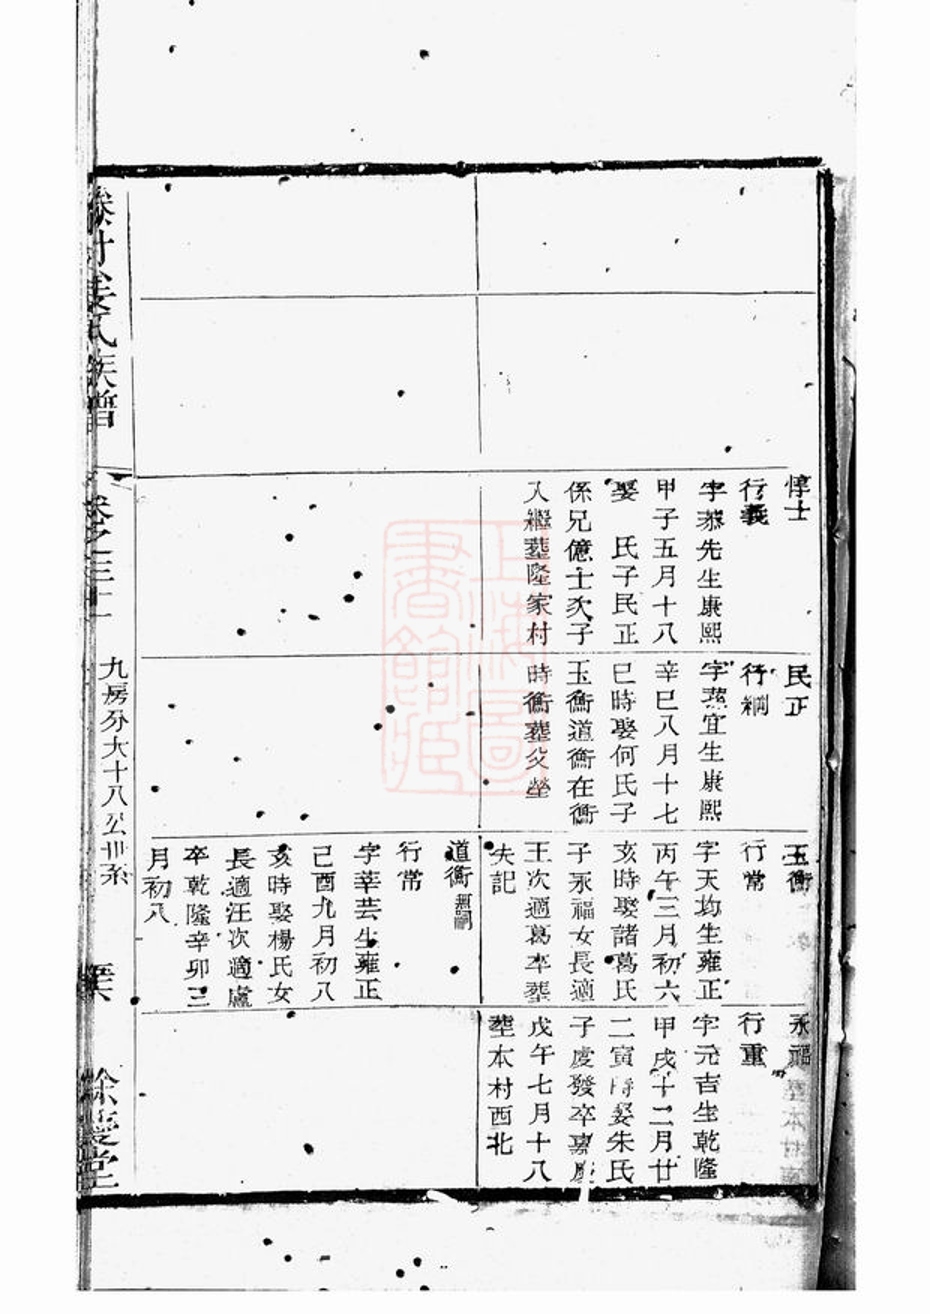 惇士
行義
字恭先生康熙
甲子五月十八
娶 氏子民正
係兄億士次子
入繼塟隆家村
民正
行綱
字 宜生康熙
辛巳八月十七
巳時娶何氏子
玉衡道衡在衡
時衡塟父塋
玉衡
行常
字天均生雍正
丙午三月初六
亥時娶諸葛氏
子永福女長適
王次適葛卒塟
失記
道衡無嗣
行常
字莘芸生雍正
己酉九月初八
亥時娶楊氏女
長適汪次適盧
卒乾隆辛卯三
月初八
永福
行重
字元吉生乾隆
甲戌十二月廿
二寅時娶朱氏
子慶發卒嘉慶
戊午七月十八
塟本村西北
姜氏族譜
卷之三十
九房分大十八公卅系
餘慶堂
上海圖書館藏